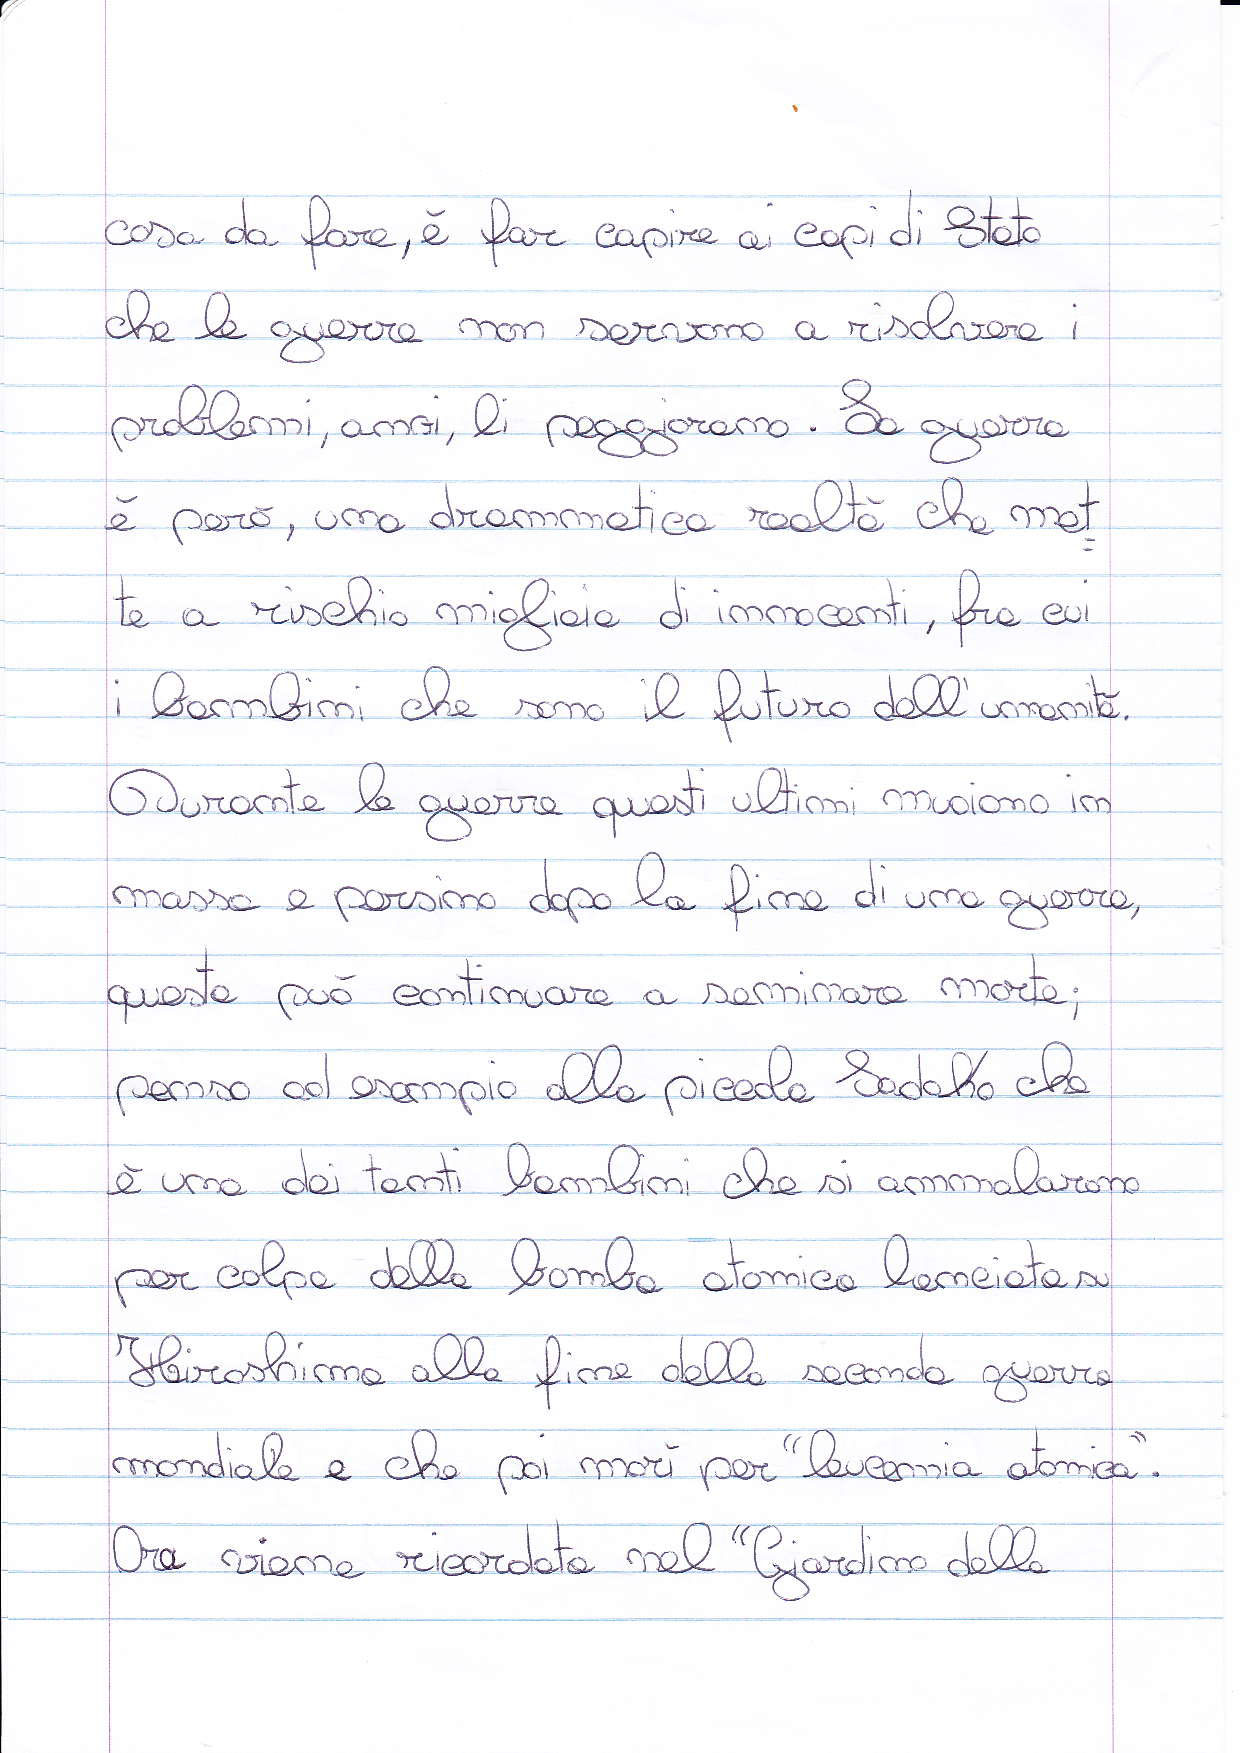 cosa da fare, è far capire ai capi di Stato
che le guerre non servono a risolvere i
problemi, anzi, li peggiorano. La guerra
è però, una drammatica realtà che met
te a rischio migliaia di innocenti, fra cui
i bambini che sono il futuro dell'umanità.
Durante la guerra questi ultimi muoiono in
massa e persino dopo la fine di una guerra,
questa può continuare a seminare morte;
penso ad esempio alla piccola Sadako che
è una dei tanti bambini che si ammalarono
per colpa della bomba atomica lanciata su
Hiroshima alla fine della seconda guerra
mondiale e che poi morì per "leucemia atomica".
Ora viene ricordata nel "Giardino della